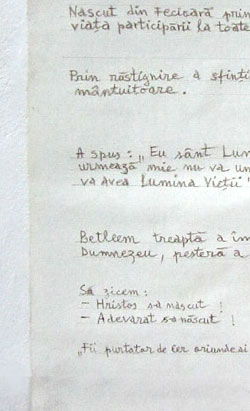 Născut din Fecioară prin
viața participării la toate
Prin răstignire a sfinți
mântuitoare.
A spus: „Eu sânt Lum
urmează mie nu va um
va avea Lumina Vieții"
Betleem treaptă a îm
Dumnezeu, peșteră a
Să zicem:
- Hristos s-a născut!
- Adevărat s-a născut!
„Fii purtător de cer oriunde ai